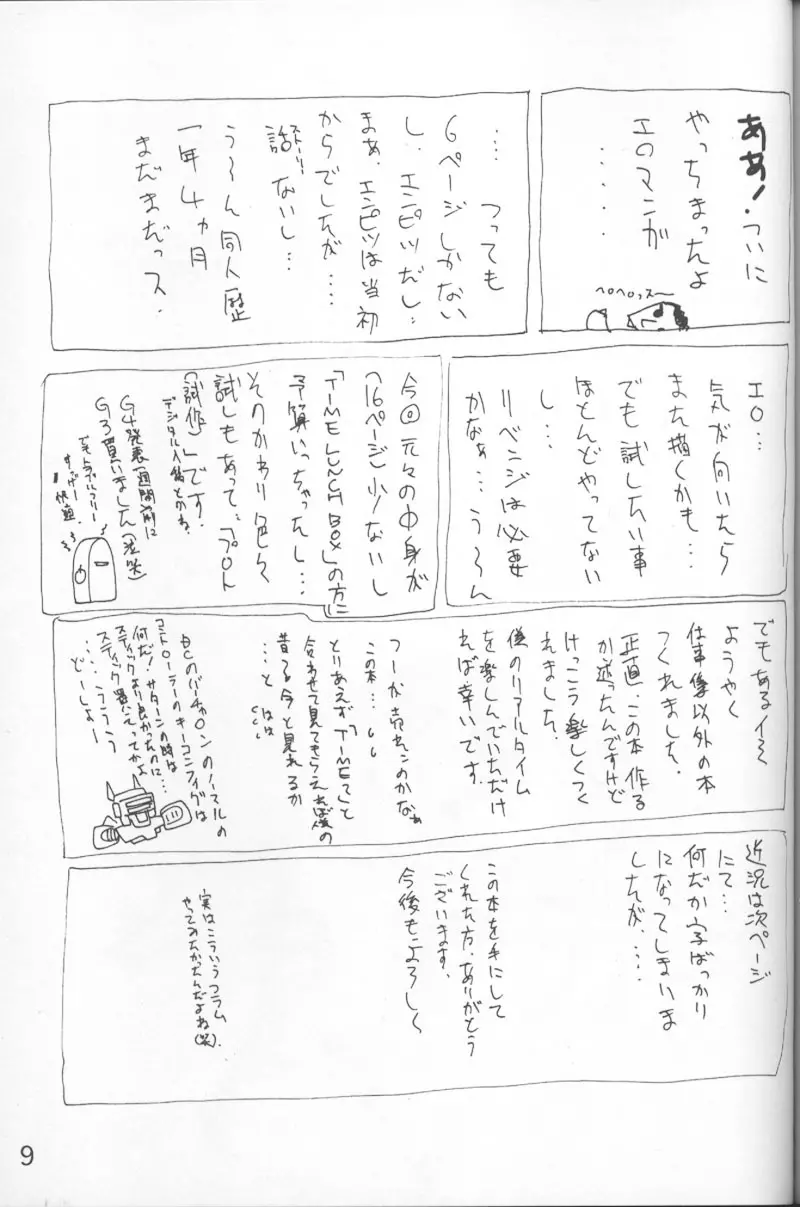 ああ!ついに
やっちまったよ
エロマンガ
・・・・・
ヘロヘロッス〜
…つっても
6ページしかない
し、エンピツだし…
まぁ、エンピツは当初
からでしたが……
話ないし…
ストーリー
う〜ん同人歴
一年4ヵ月
まだまだっス.
エロ…
気が向いたら
また描くかも…
でも試したい事
ほとんどやってない
し…
リベンジは必要
かなぁ…う〜ん
今回元々の中身が
(16ページ)少ないし
「TIME LUNCH
BOX」の方に
予算いっちゃったし…
そのかわり色々
試しもあって…「プロト
(試作)」です.
デジタル入稿とかね.
G4発表1週間前に
G3買いました(泣笑)
でもトラブルフリー
すっげー
快適.
でもある1く
ようやく
仕事像以外の本
つくれました.
正直、この本作る
か迷ったんですけど
けっこう楽しくつく
れました.
僕のリアルタイム
を楽しんでいただけ
れば幸いです.
つーか売れんのかなぁ
この本…
とりあえず「TIME〜」と
合わせて見てもらえれば僕の
昔〜今と見れるか
…と
はは
DCのバーチャロンのノーマルの
コントローラーのキーコンフィグは
何だ!サターンの時は
スティックより良かったのに…
スティック買いえってかよ
……うううう
どーしよー
近況は次ページ
にて…
何だか字ばっかり
になってしまいま
したが、….
この本を手にして
くれた方、ありがとう
ございます.
今後もよろしく
実はこういうコラム
やってみたかったんだよね(笑).
9